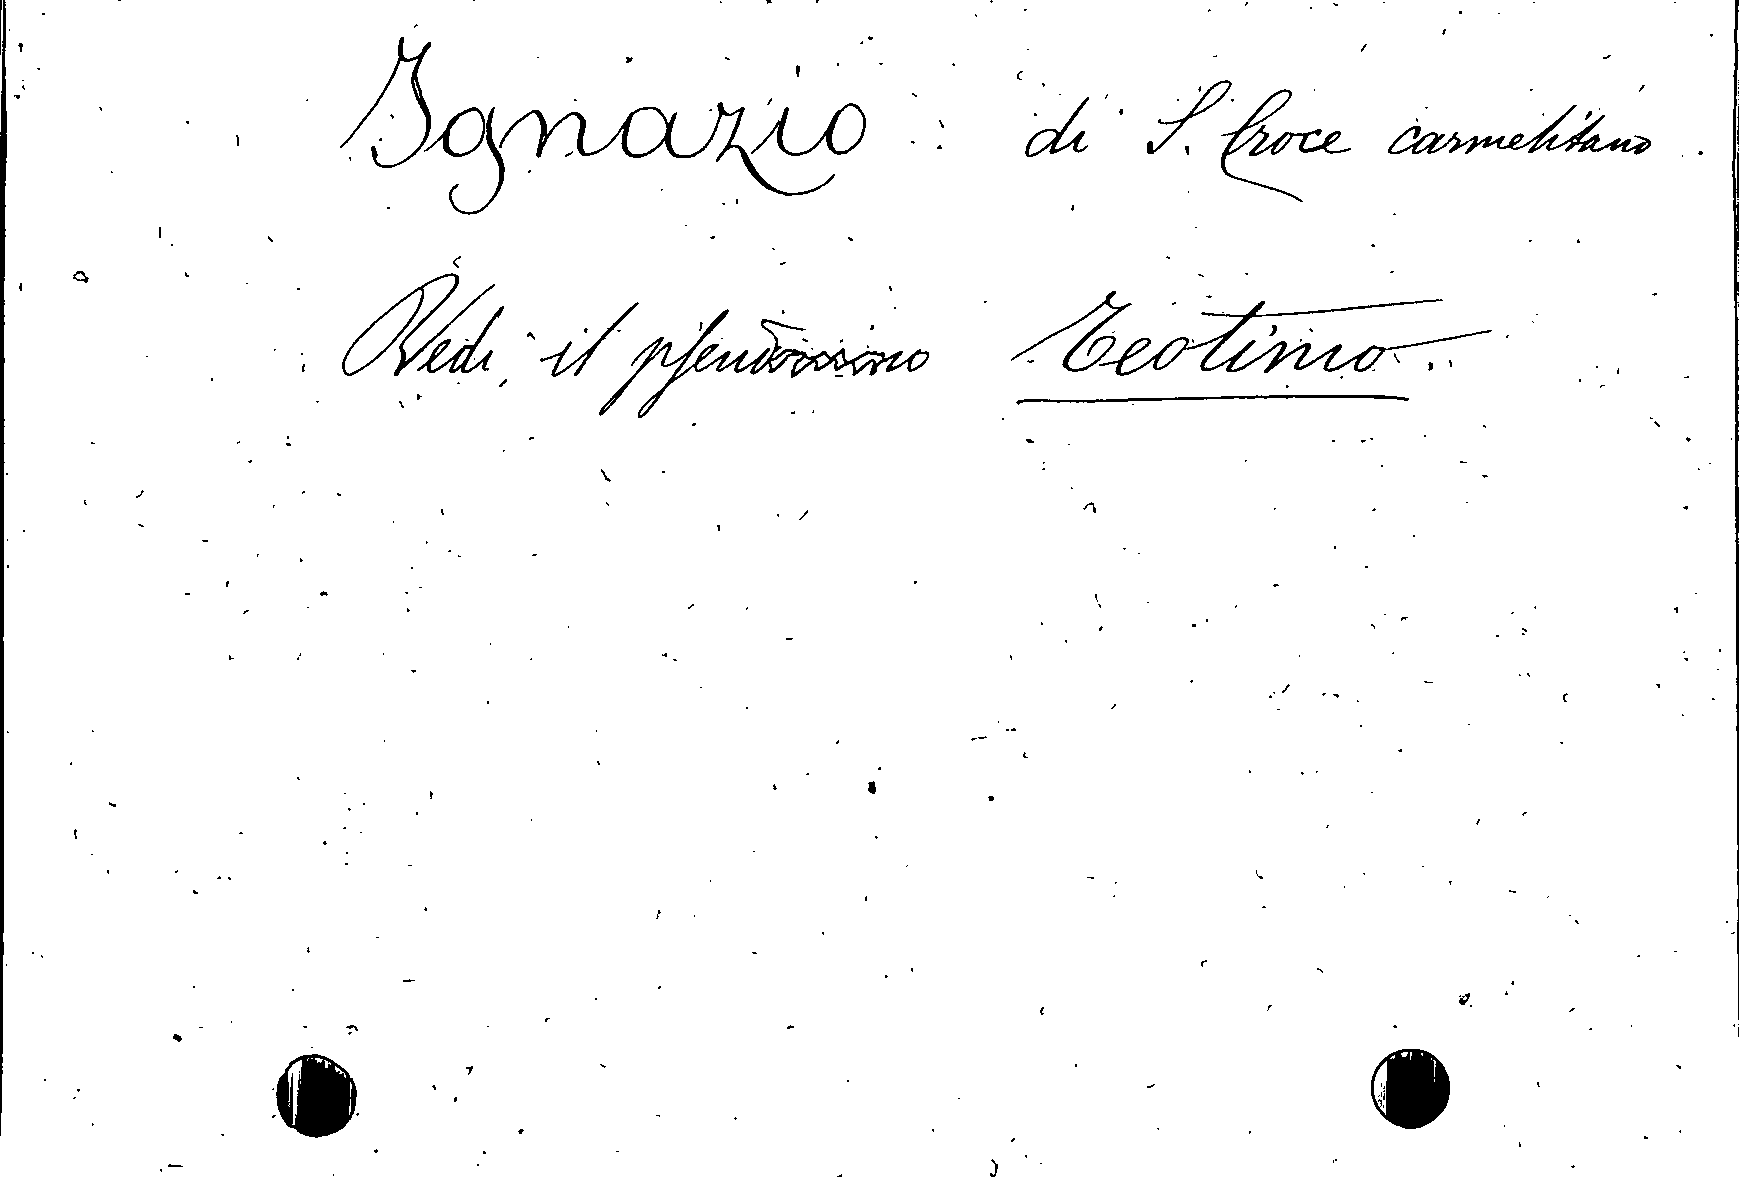 Ignazio di S. Croce carmelitano
Vedi il pseudonimo Teotimo